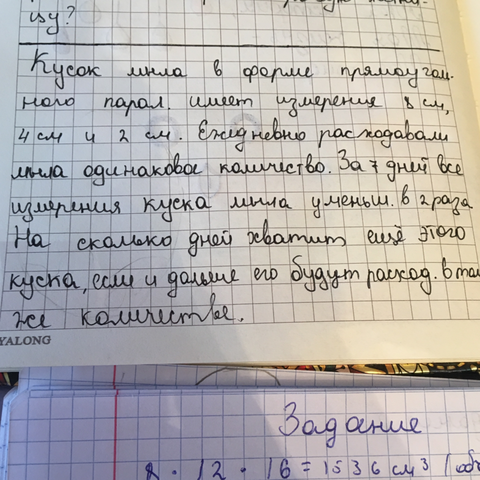 цу?
Кусок мыла в форме прямоугол-
ного парал. имеет измерения 8 см,
4 см и 2 см. Ежедневно расходовали
мыла одинаковое количество. За 7 дней все
измерения куска мыла уменьш. в 2 раза
На сколько дней хватит ещё этого
куска, если и дальше его будут расход. в та
же количестве.
YALONG
Задание
8 · 12 · 16 = 1536 см³ (об